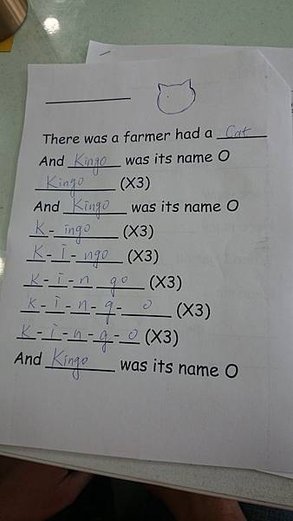 There was a farmer had a Cat
And Kingo was its name O
Kingo (X3)
And Kingo was its name O
K - ingo (X3)
K - i - ngo (X3)
K - i - n go (X3)
K - i - n - g - o (X3)
K - i - n - g - o (X3)
And Kingo was its name O